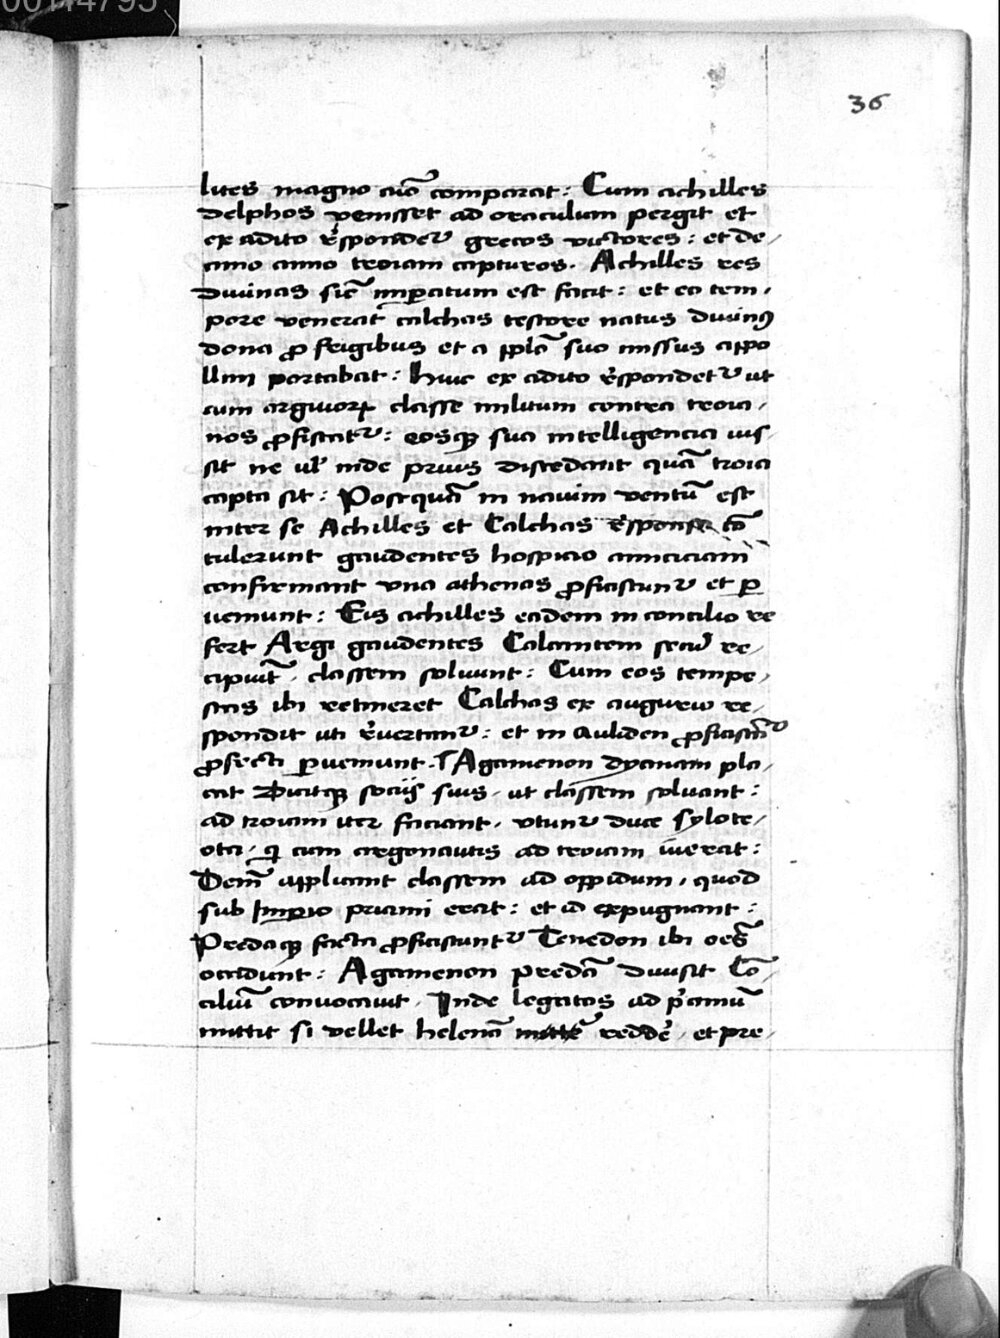 36
lites magno aīo comparat : Cum achilles
delphos venisset ad oraculum pergit et
ex adito r̄spondet᷑ grecos victores : et de/
cimo anno troiam capturos . Achilles res
diuinas sic̄ imꝑatum est facit : et eo tem/
pore venerat calchas testore natus diuinꝰ
dona ꝓ frigibus et a pplō suo missus appo
llini portabat : huic ex adito r̄spondet᷑ ut
cum arguiorꝝ classe militum contra troia/
nos ꝓfiscat᷑ : eosqꝫ sua intelligencia iuf/
sit ne ul̄ inde prius discedant quā troia
capta sit : Postquā in nauim ventū est
inter se Achilles et Calchas r̄sponsa cō
tulerunt gaudentes hospicio amiciciam
confremant vna athenas ꝓficiscunt᷑ et ꝑ
ueniunt : Eis achilles eadem in concilio re
fert Argi gaudentes Calcantem secū re/
cipiūt . classem soluunt : Cum eos tempe/
stas ibi retineret Calchas ex augurio re/
spondit uti r̄uertant᷑ : et in auliden ꝓficiscāt᷑
ꝓfecti ꝑueniunt . Agamenon dyanam pla/
cat dicitqꝫ sociis suis . ut classem soluant :
ad troiam iter faciant . vtunt᷑ duce sylote/
ota . qi cum argonautis ad troiam iuerat :
Dein̄ applicant classem ad oppidum . quod
sub Imꝑio priami erat : et id expugnant :
Predaqꝫ facta ꝓficiscunt᷑ Tenedon ibi oēs
occidunt : Agamenon predā diuisit Cō/
ciliū conuocauit . Inde legatos ad p̄amū
mittit si vellet helenā redde᷑ . et pre/